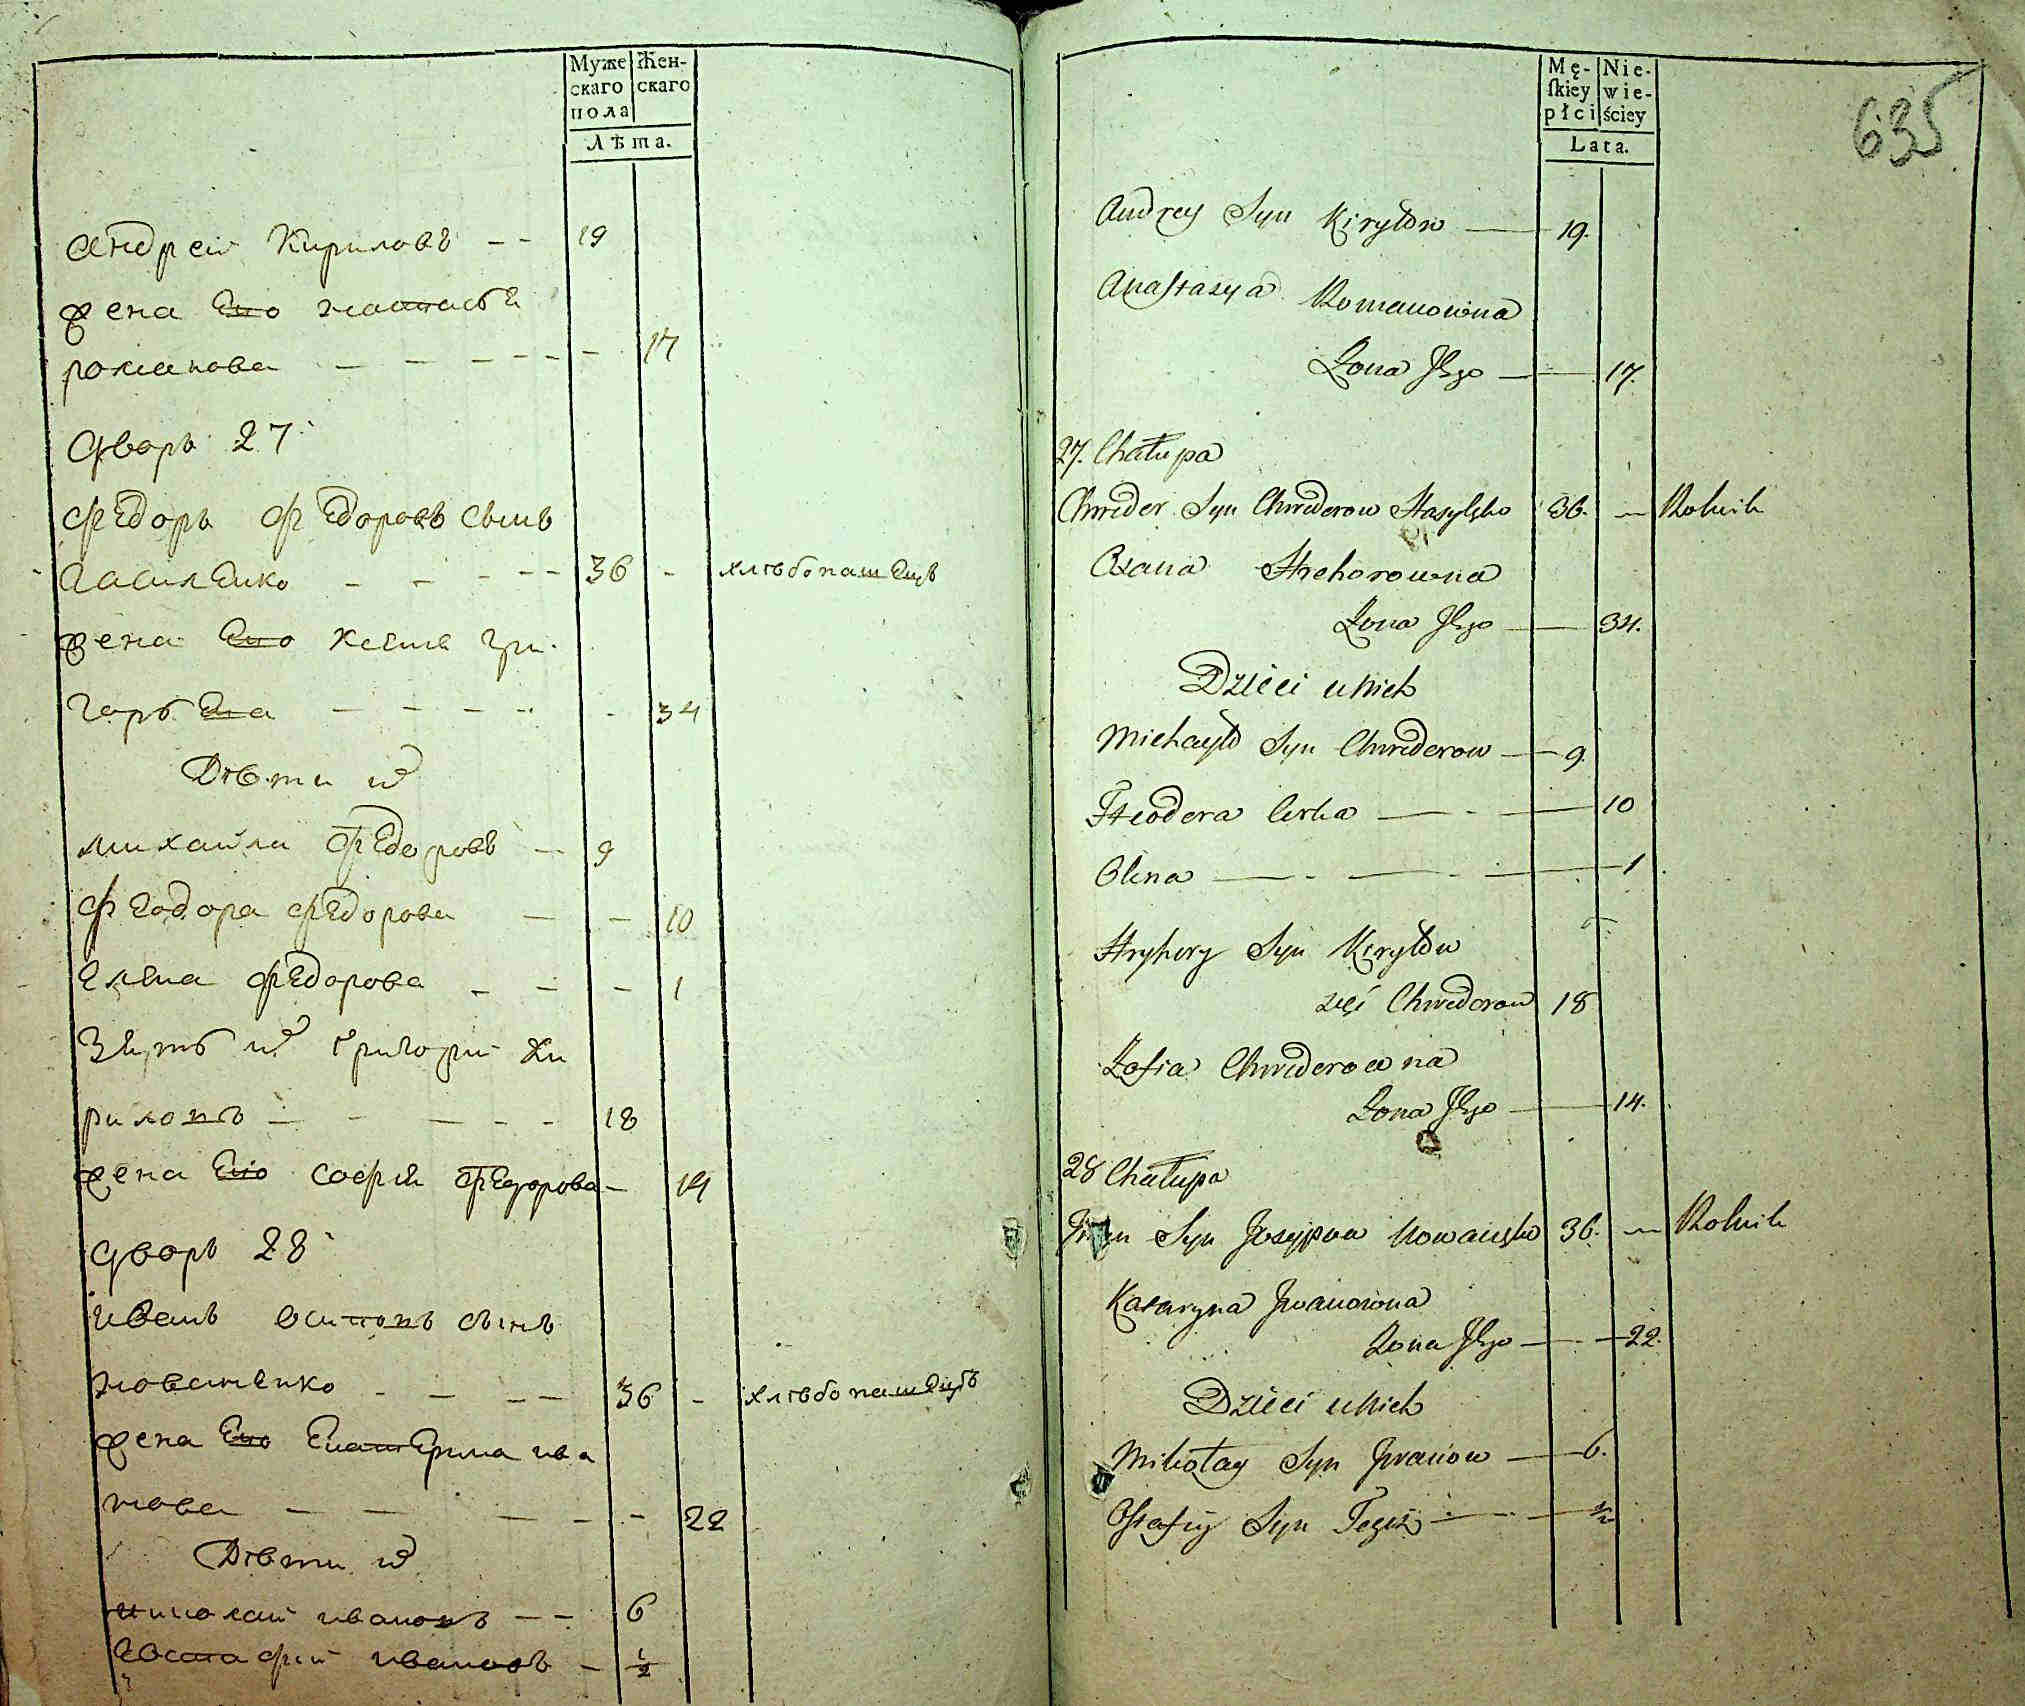 Муже Жен-
скаго скаго
пола
Лѣта.
Андрей Кириловъ - - 19
жена Его настасья
романова - - - - - - 17
Дворъ 27
Федоръ Федоровъ сынъ
василенко - - - - - 36 - хлѣбопашецъ
жена Его ксеня гри-
горьева - - - - - - 34
Дѣти их
михайла Федоровъ - 9
Феодора Федорова - - 10
елена Федорова - - - 1
Зять их григорий Ки
риловъ - - - - - 18
жена Его софия Федорова - 14
Дворъ 28
иванъ осиповъ сынъ
новаченко - - - - 36 - хлѣбопашецъ
жена Его Екатерина ива
нова - - - - - 22
Дѣти их
николай ивановъ - - 6
евстафий ивановъ - ½
Mę- Nie-
ſkiey wie-
płci ściey
Lata.
635
Andrey Syn Kiryłow — 19.
Anastazya Romanowna
Zona Jego — 17.
27. Chałupa
Chweder Syn Chwederow Wasylęko 36. — Rolnik
Oxana Hrehorowna
Zona Jego — 34.
Dzieci u Nich
Michayło Syn Chwederow — 9.
Fteodora Corka — - — 10
Olena — - — - — 1
Hryhory Syn Kiryłow
zięć Chwederow 18
Zofia Chwederowna
Zona Jego — 14.
28 Chałupa
Syn Jozypow 36. — Rolnik
Katarzyna Jwanowna
Zona Jego — 22.
Dzieci u Nich
Mikołay Syn Jwanow — 6.
Ostafiy Syn Tegoż - — ½